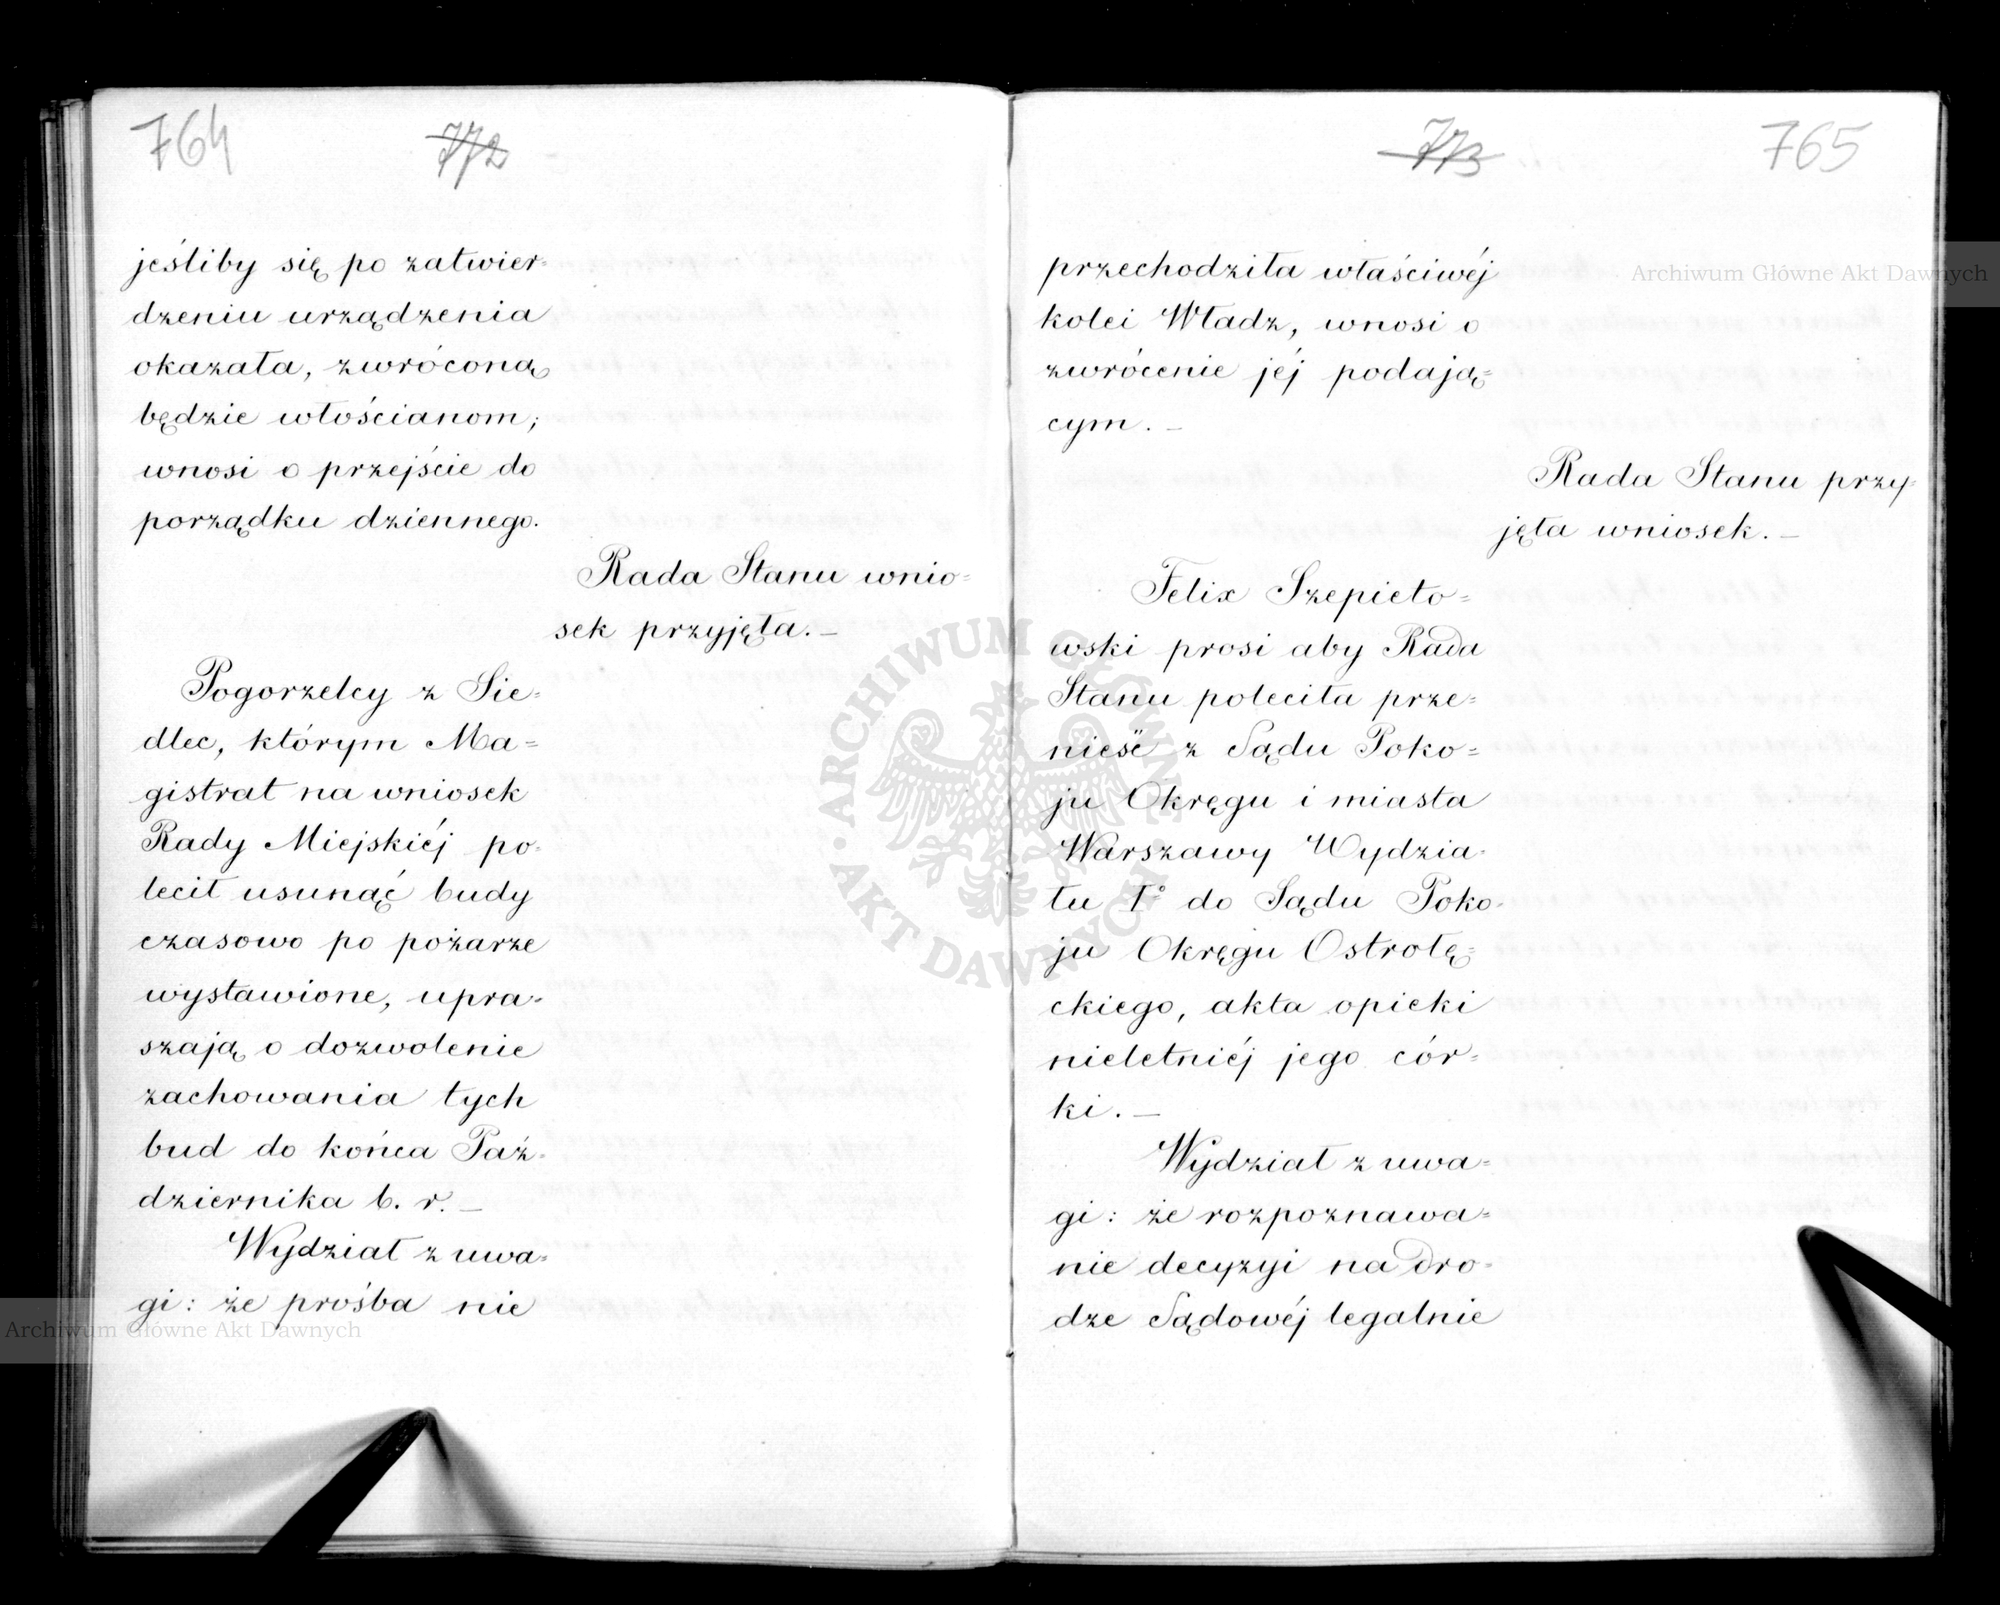 764
772
jeśliby się po zatwier-
dzeniu urządzenia
okazała, zwróconą
będzie włościanom;
wnosi o przejście do
porządku dziennego.
Rada Stanu wnio=
sek przyjęła. —
Pogorzelcy z Sie=
dlec, którym Ma=
gistrat na wniosek
Rady Miejskiéj po-
lecił usunąć budy
czasowo po pożarze
wystawione, upra-
szają o dozwolenie
zachowania tych
bud do końca Paź-
dziernika b. r. —
Wydział z uwa-
gi: że prośba nie
773
765
przechodziła właściwéj
kolei Władz, wnosi o
zwrócenie jéj podają=
cym. —
Rada Stanu przy-
jęła wniosek. —
Felix Szepieto=
wski prosi aby Rada
Stanu poleciła prze=
nieść z Sądu Poko=
ju Okręgu i miasta
Warszawy Wydzia-
łu I° do Sądu Poko-
ju Okręgu Ostrołę=
ckiego, akta opieki
nieletniéj jego cór=
ki. —
Wydział z uwa=
gi: że rozpoznawa=
nie decyzyi na dro-
dze Sądowéj legalnie
Archiwum Główne Akt Dawnych
Archiwum Główne Akt Dawnych
ARCHIWUM GŁÓWNE AKT DAWNYCH